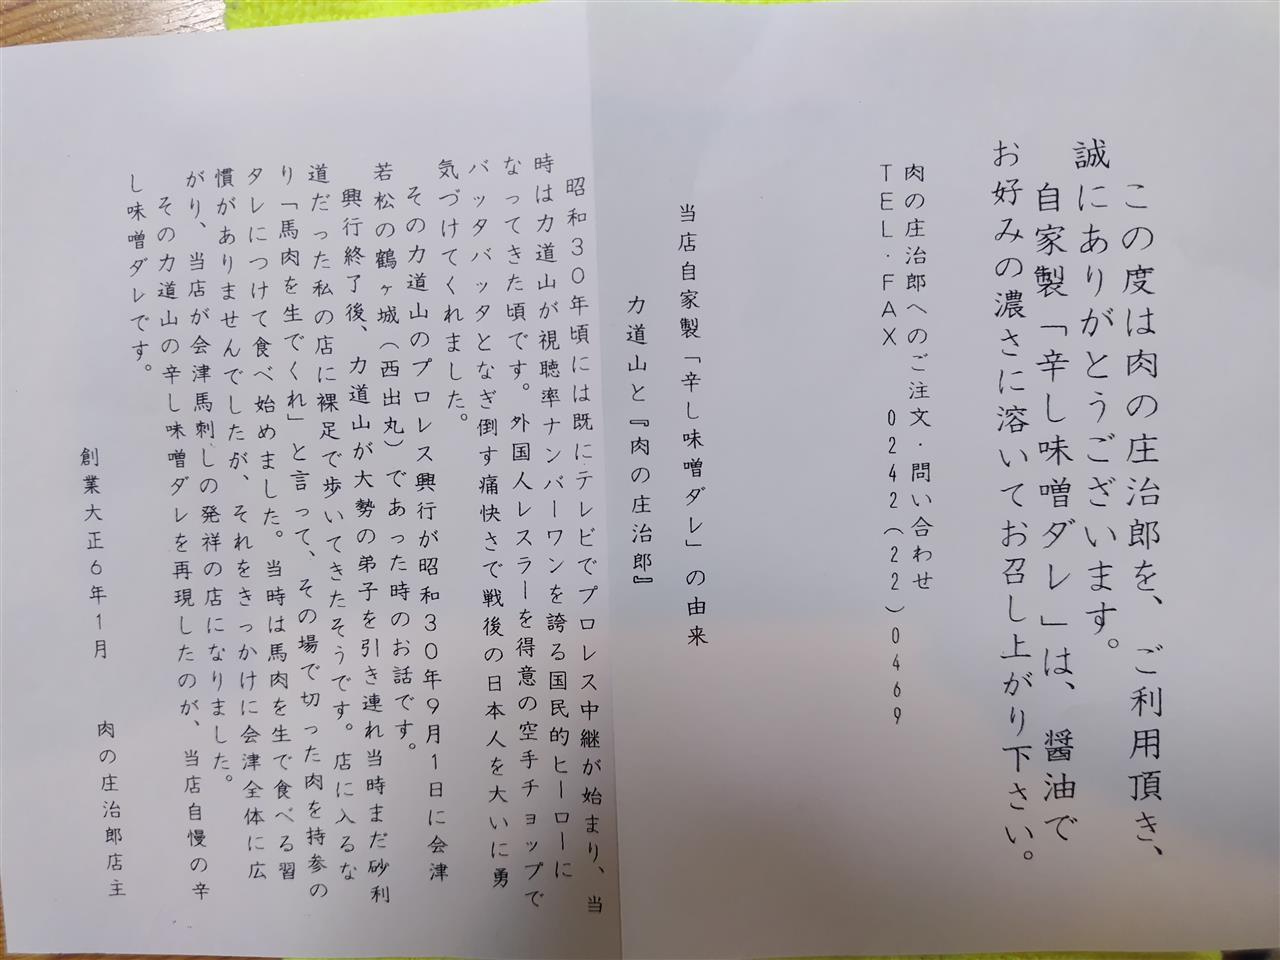 この度は肉の庄治郎を、ご利用頂き、
誠にありがとうございます。
自家製「辛し味噌ダレ」は、醤油で
お好みの濃さに溶いてお召し上がり下さい。
肉の庄治郎へのご注文・問い合わせ
TEL・FAX 0242(22)0469
当店自家製「辛し味噌ダレ」の由来
力道山と『肉の庄治郎』
昭和30年頃には既にテレビでプロレス中継が始まり、当
時は力道山が視聴率ナンバーワンを誇る国民的ヒーローに
なってきた頃です。外国人レスラーを得意の空手チョップで
バッタバッタとなぎ倒す痛快さで戦後の日本人を大いに勇
気づけてくれました。
その力道山のプロレス興行が昭和30年9月1日に会津
若松の鶴ヶ城(西出丸)であった時のお話です。
興行終了後、力道山が大勢の弟子を引き連れ当時まだ砂利
道だった私の店に裸足で歩いてきたそうです。店に入るな
り「馬肉を生でくれ」と言って、その場で切った肉を持参の
タレにつけて食べ始めました。当時は馬肉を生で食べる習
慣がありませんでしたが、それをきっかけに会津全体に広
がり、当店が会津馬刺しの発祥の店になりました。
その力道山の辛し味噌ダレを再現したのが、当店自慢の辛
し味噌ダレです。
創業大正6年1月 肉の庄治郎店主